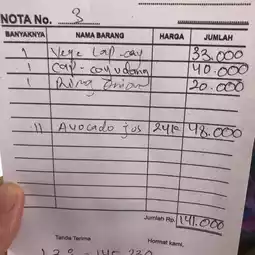 NOTA No. 3
BANYAKNYA NAMA BARANG HARGA JUMLAH
1 Vege Lap-cay 33.000
1 cap-cay udang 40.000
1 20.000
11 Avocado jus 24 48.000
Jumlah Rp. 141.000
Tanda Terima Hormat kami,